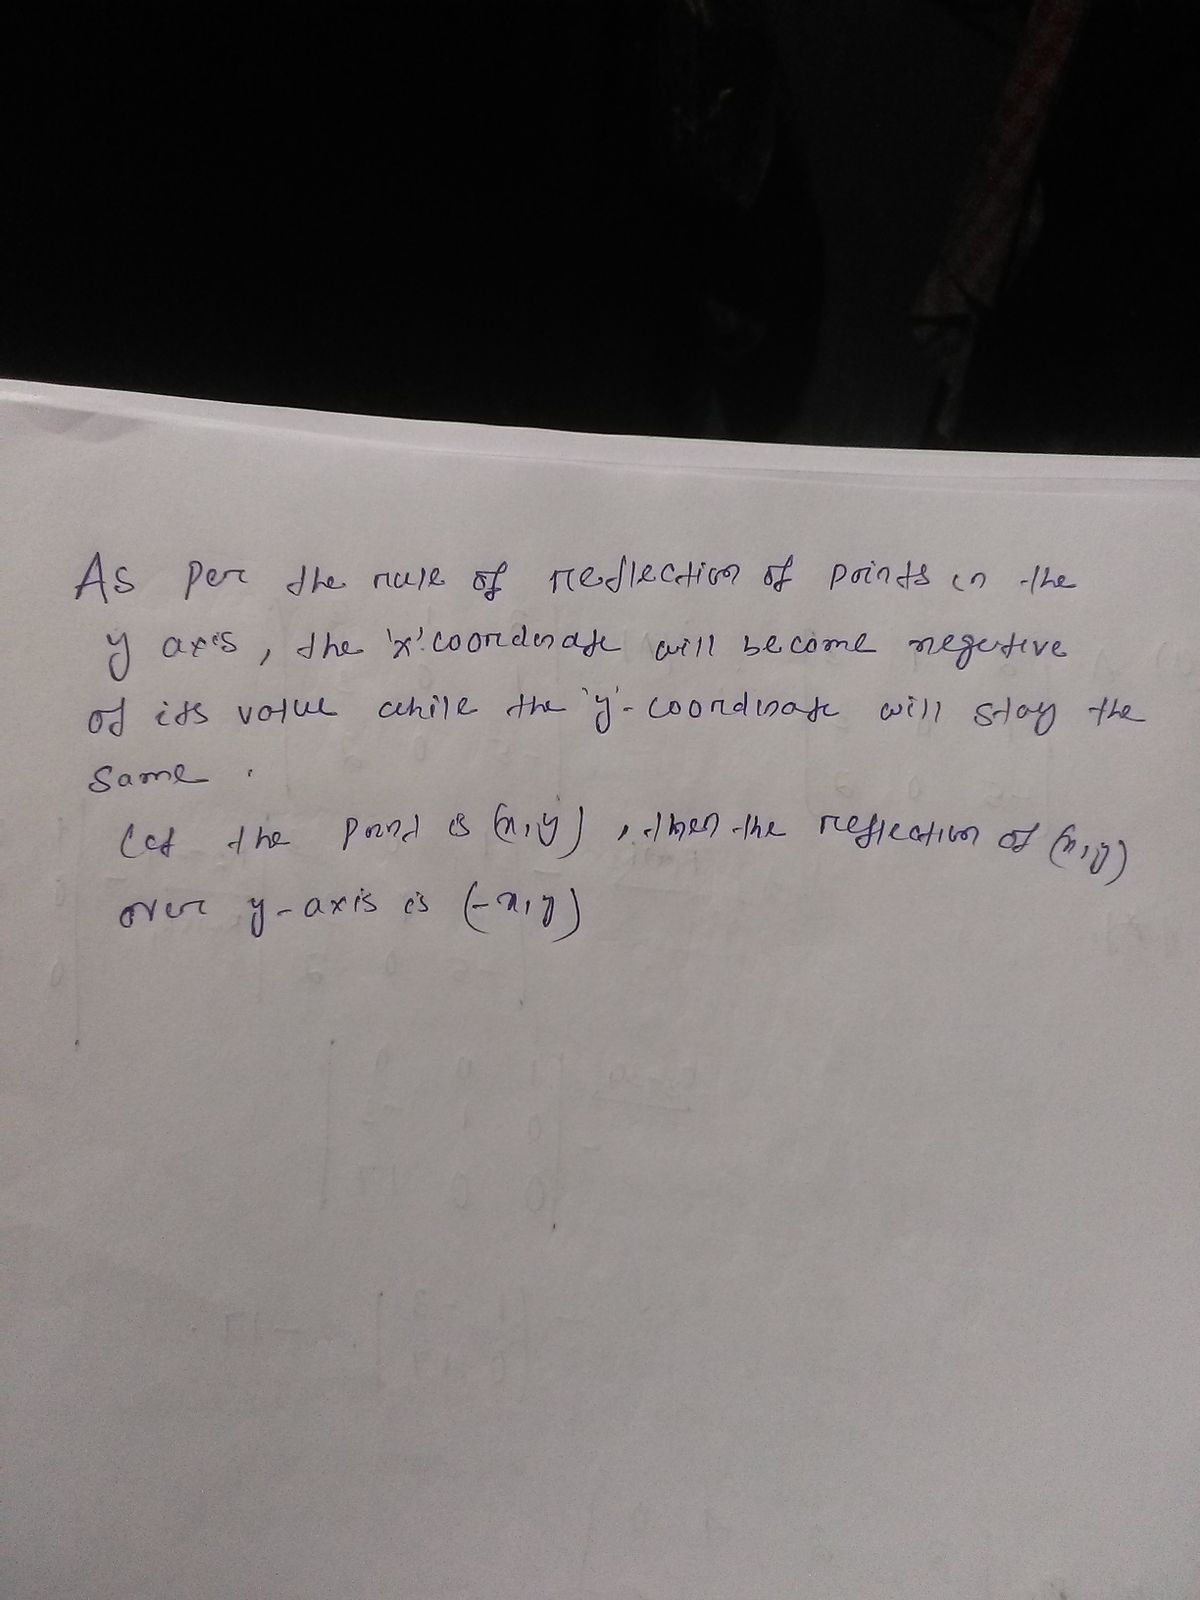 As per the rule of reflection of points in the
y axis, the 'x' coordinate will become negative
of its value while the 'y'-coordinate will stay the
same.
Let the point is (x,y), then the reflection of (x,y)
over y-axis is (-x,y)